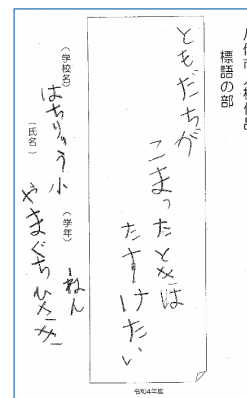 標語の部
ともだちが
こまったときは
たすけたい
(学校名)
はちりゅう小
(学年)
一ねん
(氏名)
やまぐちひさき
令和4年度